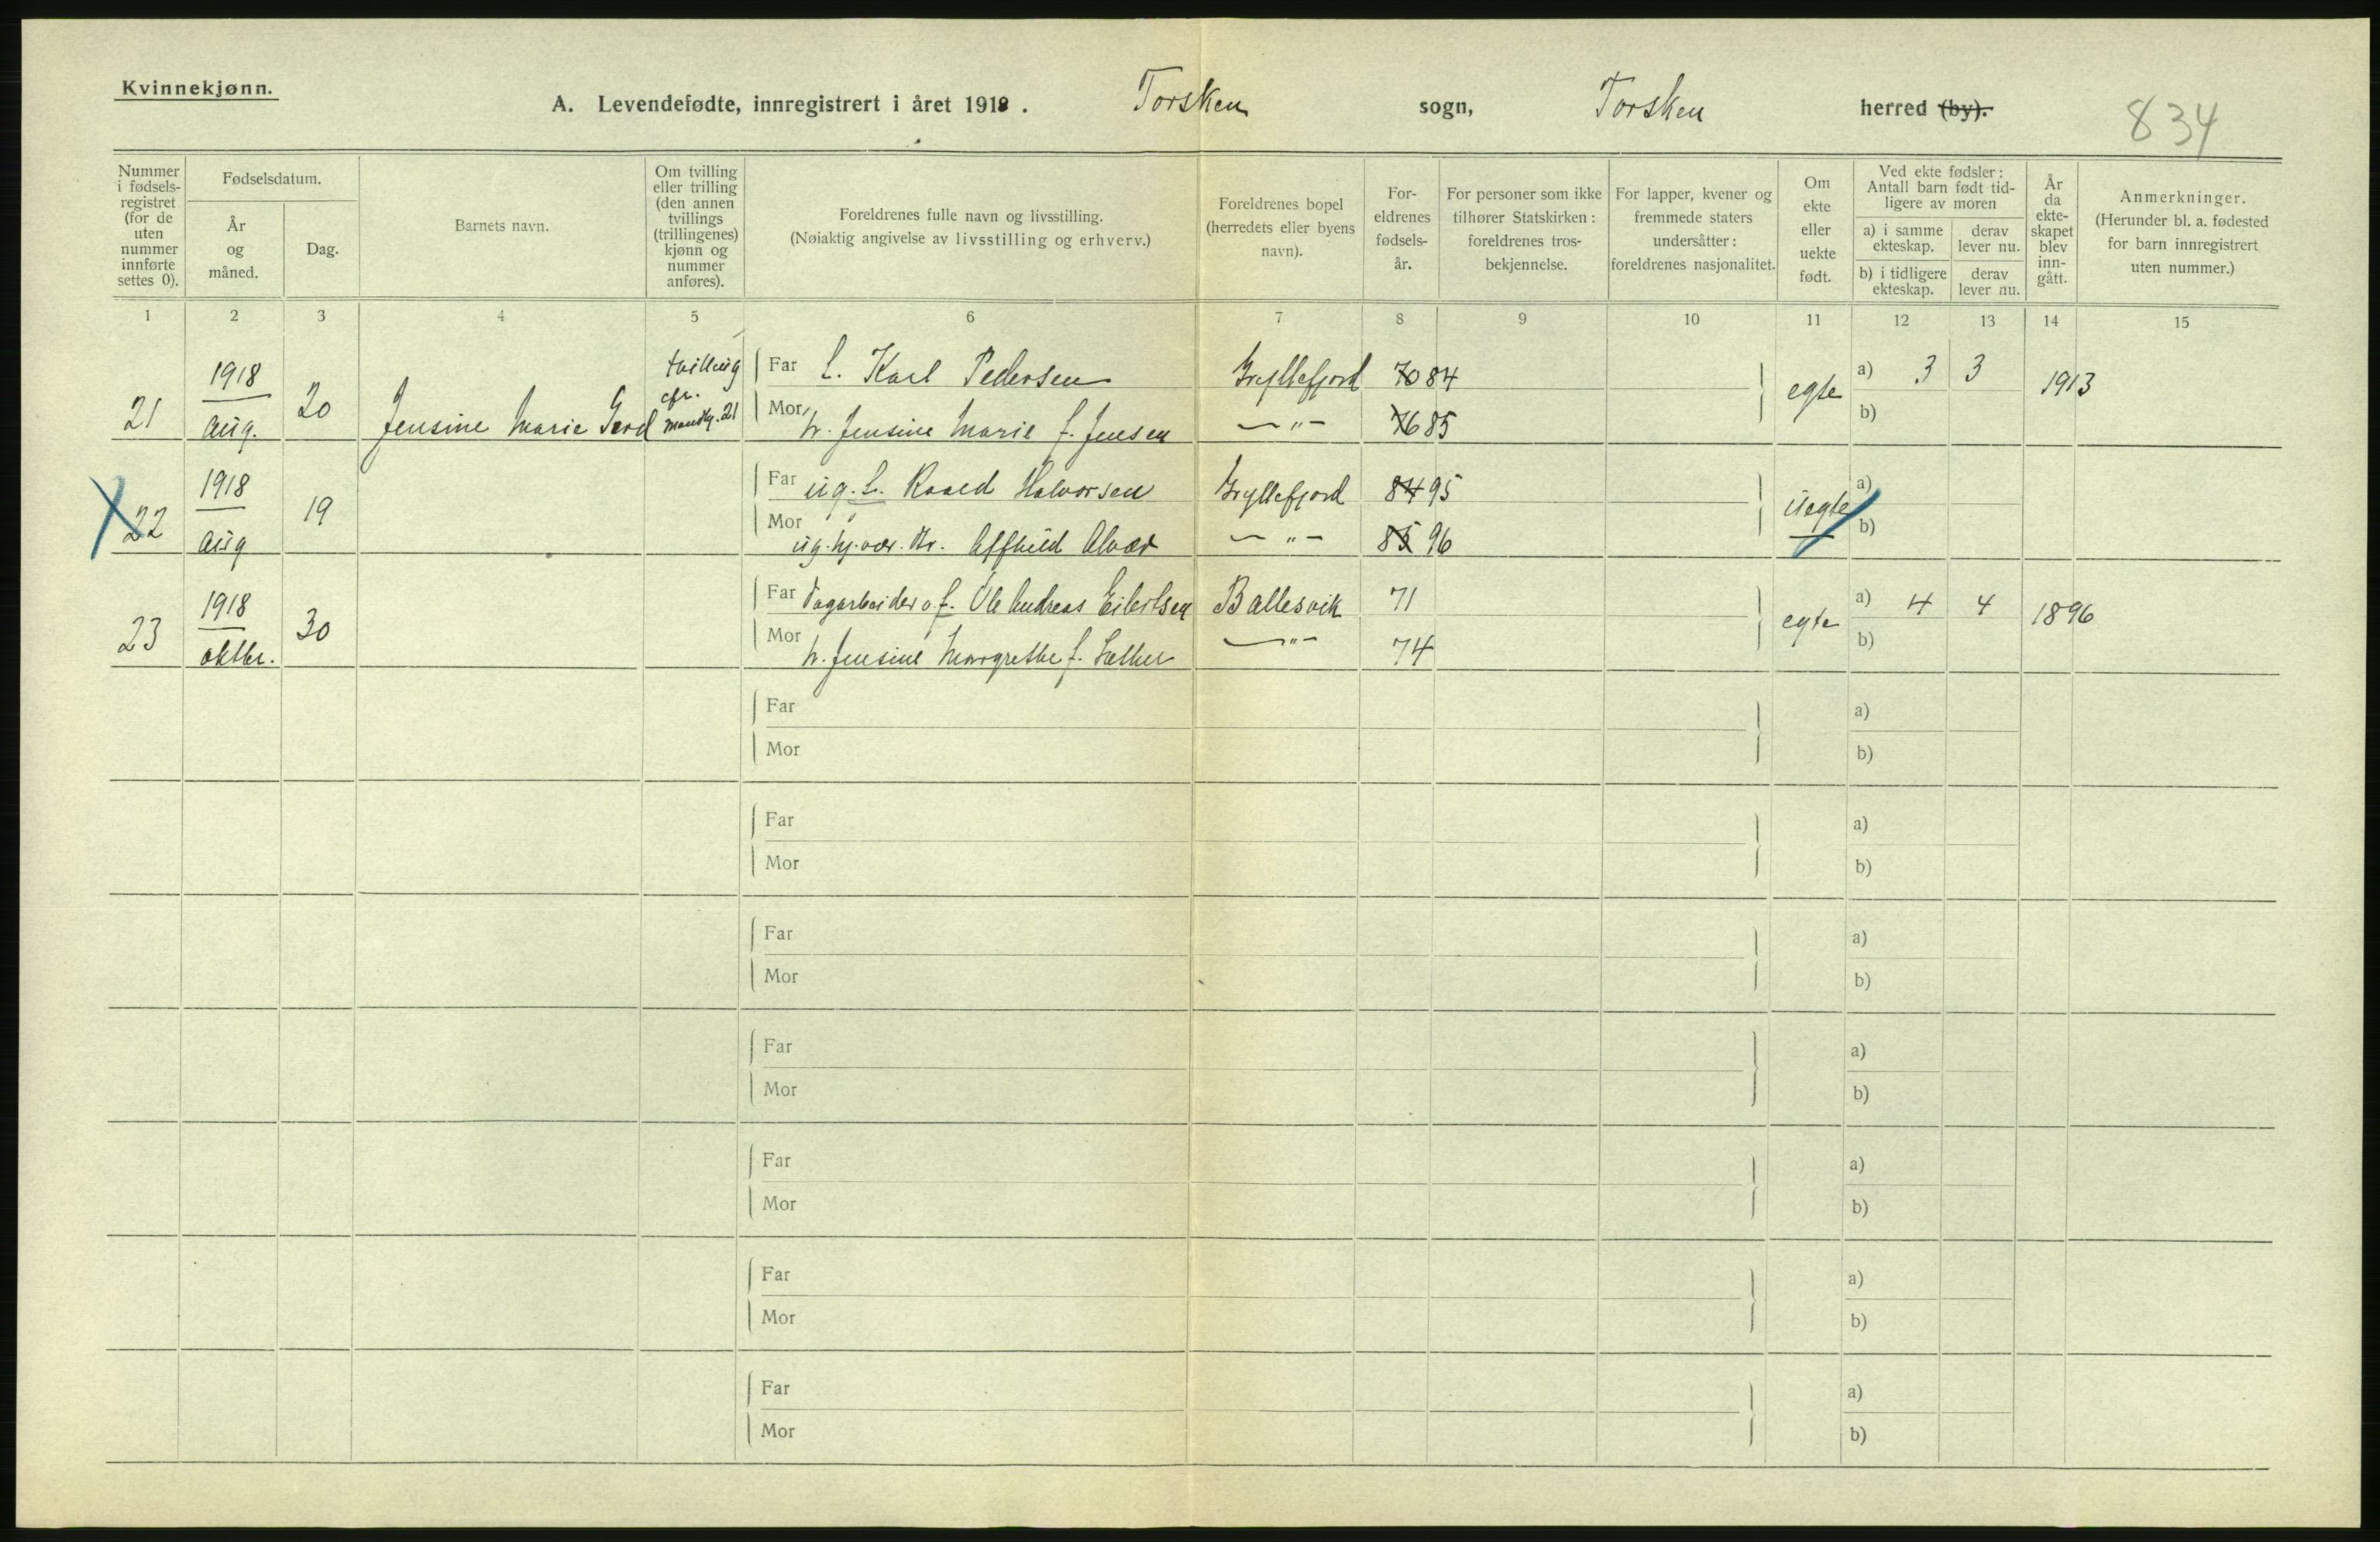 Kvinnekjønn.
A. Levendefødte, innregistrert i året 1918. Torsken sogn, Torsken herred (by).
834
Nummer i fødsels-registret (for de uten nummer innførte settes 0).
Fødselsdatum.
År og måned.
Dag.
Barnets navn.
Om tvilling eller trilling (den annen tvillings (trillingenes) kjønn og nummer anføres).
Foreldrenes fulle navn og livsstilling.
(Nøiaktig angivelse av livsstilling og erhverv.)
Foreldrenes bopel (herredets eller byens navn).
For-eldrenes fødsels-år.
For personer som ikke tilhører Statskirken: foreldrenes tros-bekjennelse.
For lapper, kvener og fremmede staters undersåtter: foreldrenes nasjonalitet.
Om ekte eller uekte født.
Ved ekte fødsler: Antall barn født tid-ligere av moren
a) i samme ekteskap.
derav lever nu.
b) i tidligere ekteskap.
derav lever nu.
År da ekte-skapet blev inn-gått.
Anmerkninger.
(Herunder bl. a. fødested for barn innregistrert uten nummer.)
1 2 3 4 5 6 7 8 9 10 11 12 13 14 15
21 1918 Aug. 20 Jensine Marie Gerd tvilling cfr. mandkj. 21
Far L. Karl Pedersen Gryllefjord 70 84 egte a) 3 3 1913
Mor h. Jensine Marie f. Jensen —"— 76 85 b)
22 1918 Aug 19
Far ug. L. Roald Halvorsen Gryllefjord 84 95 uegte a)
Mor ug. hj. vær. Dtr. Alfhild Alvær —"— 85 96 b)
23 1918 oktbr. 30
Far Dagarbeider o. f. Ole Andreas Eilertsen Ballesvik 71 egte a) 4 4 1896
Mor h. Jensine Margrethe f. —"— 74 b)
Far a)
Mor b)
Far a)
Mor b)
Far a)
Mor b)
Far a)
Mor b)
Far a)
Mor b)
Far a)
Mor b)
Far a)
Mor b)